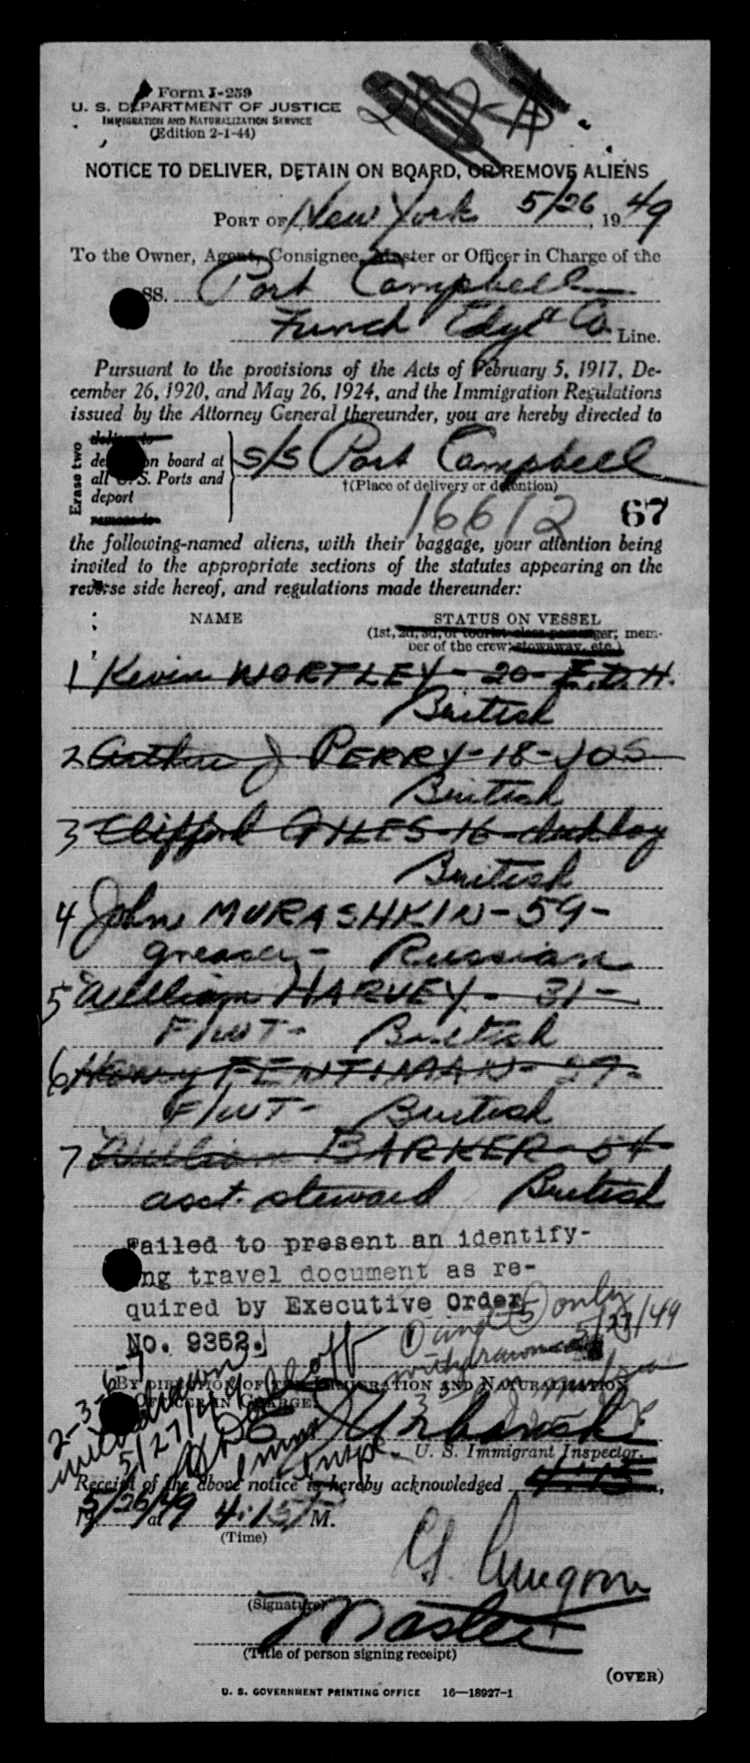 Form I-259
U. S. DEPARTMENT OF JUSTICE
IMMIGRATION AND NATURALIZATION SERVICE
(Edition 2-1-44)
NOTICE TO DELIVER, DETAIN ON BOARD, OR REMOVE ALIENS
PORT OF New York 5/26, 1949
To the Owner, Agent, Consignee, Master or Officer in Charge of the
SS. Port Campbell
Funch Edye & Co. Line.
Pursuant to the provisions of the Acts of February 5, 1917, De-
cember 26, 1920, and May 26, 1924, and the Immigration Regulations
issued by the Attorney General thereunder, you are hereby directed to
Erase two
deliver to
detain on board at
all U.S. Ports and
deport
remove to
S/S Port Campbell
†(Place of delivery or detention)
16612 67
the following-named aliens, with their baggage, your attention being
invited to the appropriate sections of the statutes appearing on the
reverse side hereof, and regulations made thereunder:
NAME STATUS ON VESSEL
(1st, 2d, 3d, or tourist class passenger; mem-
ber of the crew; stowaway, etc.)
1 Kevin WORTLEY - 20 - E.D.H.
British
2 Arthur J PERRY - 18 - JOS
British
3 Clifford GILES - 16 - deck boy
British
4 John MURASHKIN - 59 -
greaser - Russian
5 William HARVEY - 31 -
F/WT - British
6 Henry FENTIMAN - 27 -
F/WT - British
7 William BARKER - 54
asst. steward British
Failed to present an identify-
ing travel document as re-
quired by Executive Order
No. 9352.
① and ⑤ only
withdrawn 5/27/49
2-3-6-7
withdrawn
5/27/49
Immt
Inspt.
BY DIRECTION OF THE IMMIGRATION AND NATURALIZATION
OFFICER IN CHARGE:
E Urbanski
U. S. Immigrant Inspector.
Receipt of the above notice is hereby acknowledged 4:15,
5/26/49 at 4:15 P M.
(Time)
(Signature)
Master
(Title of person signing receipt)
(OVER)
U. S. GOVERNMENT PRINTING OFFICE 16—18927-1